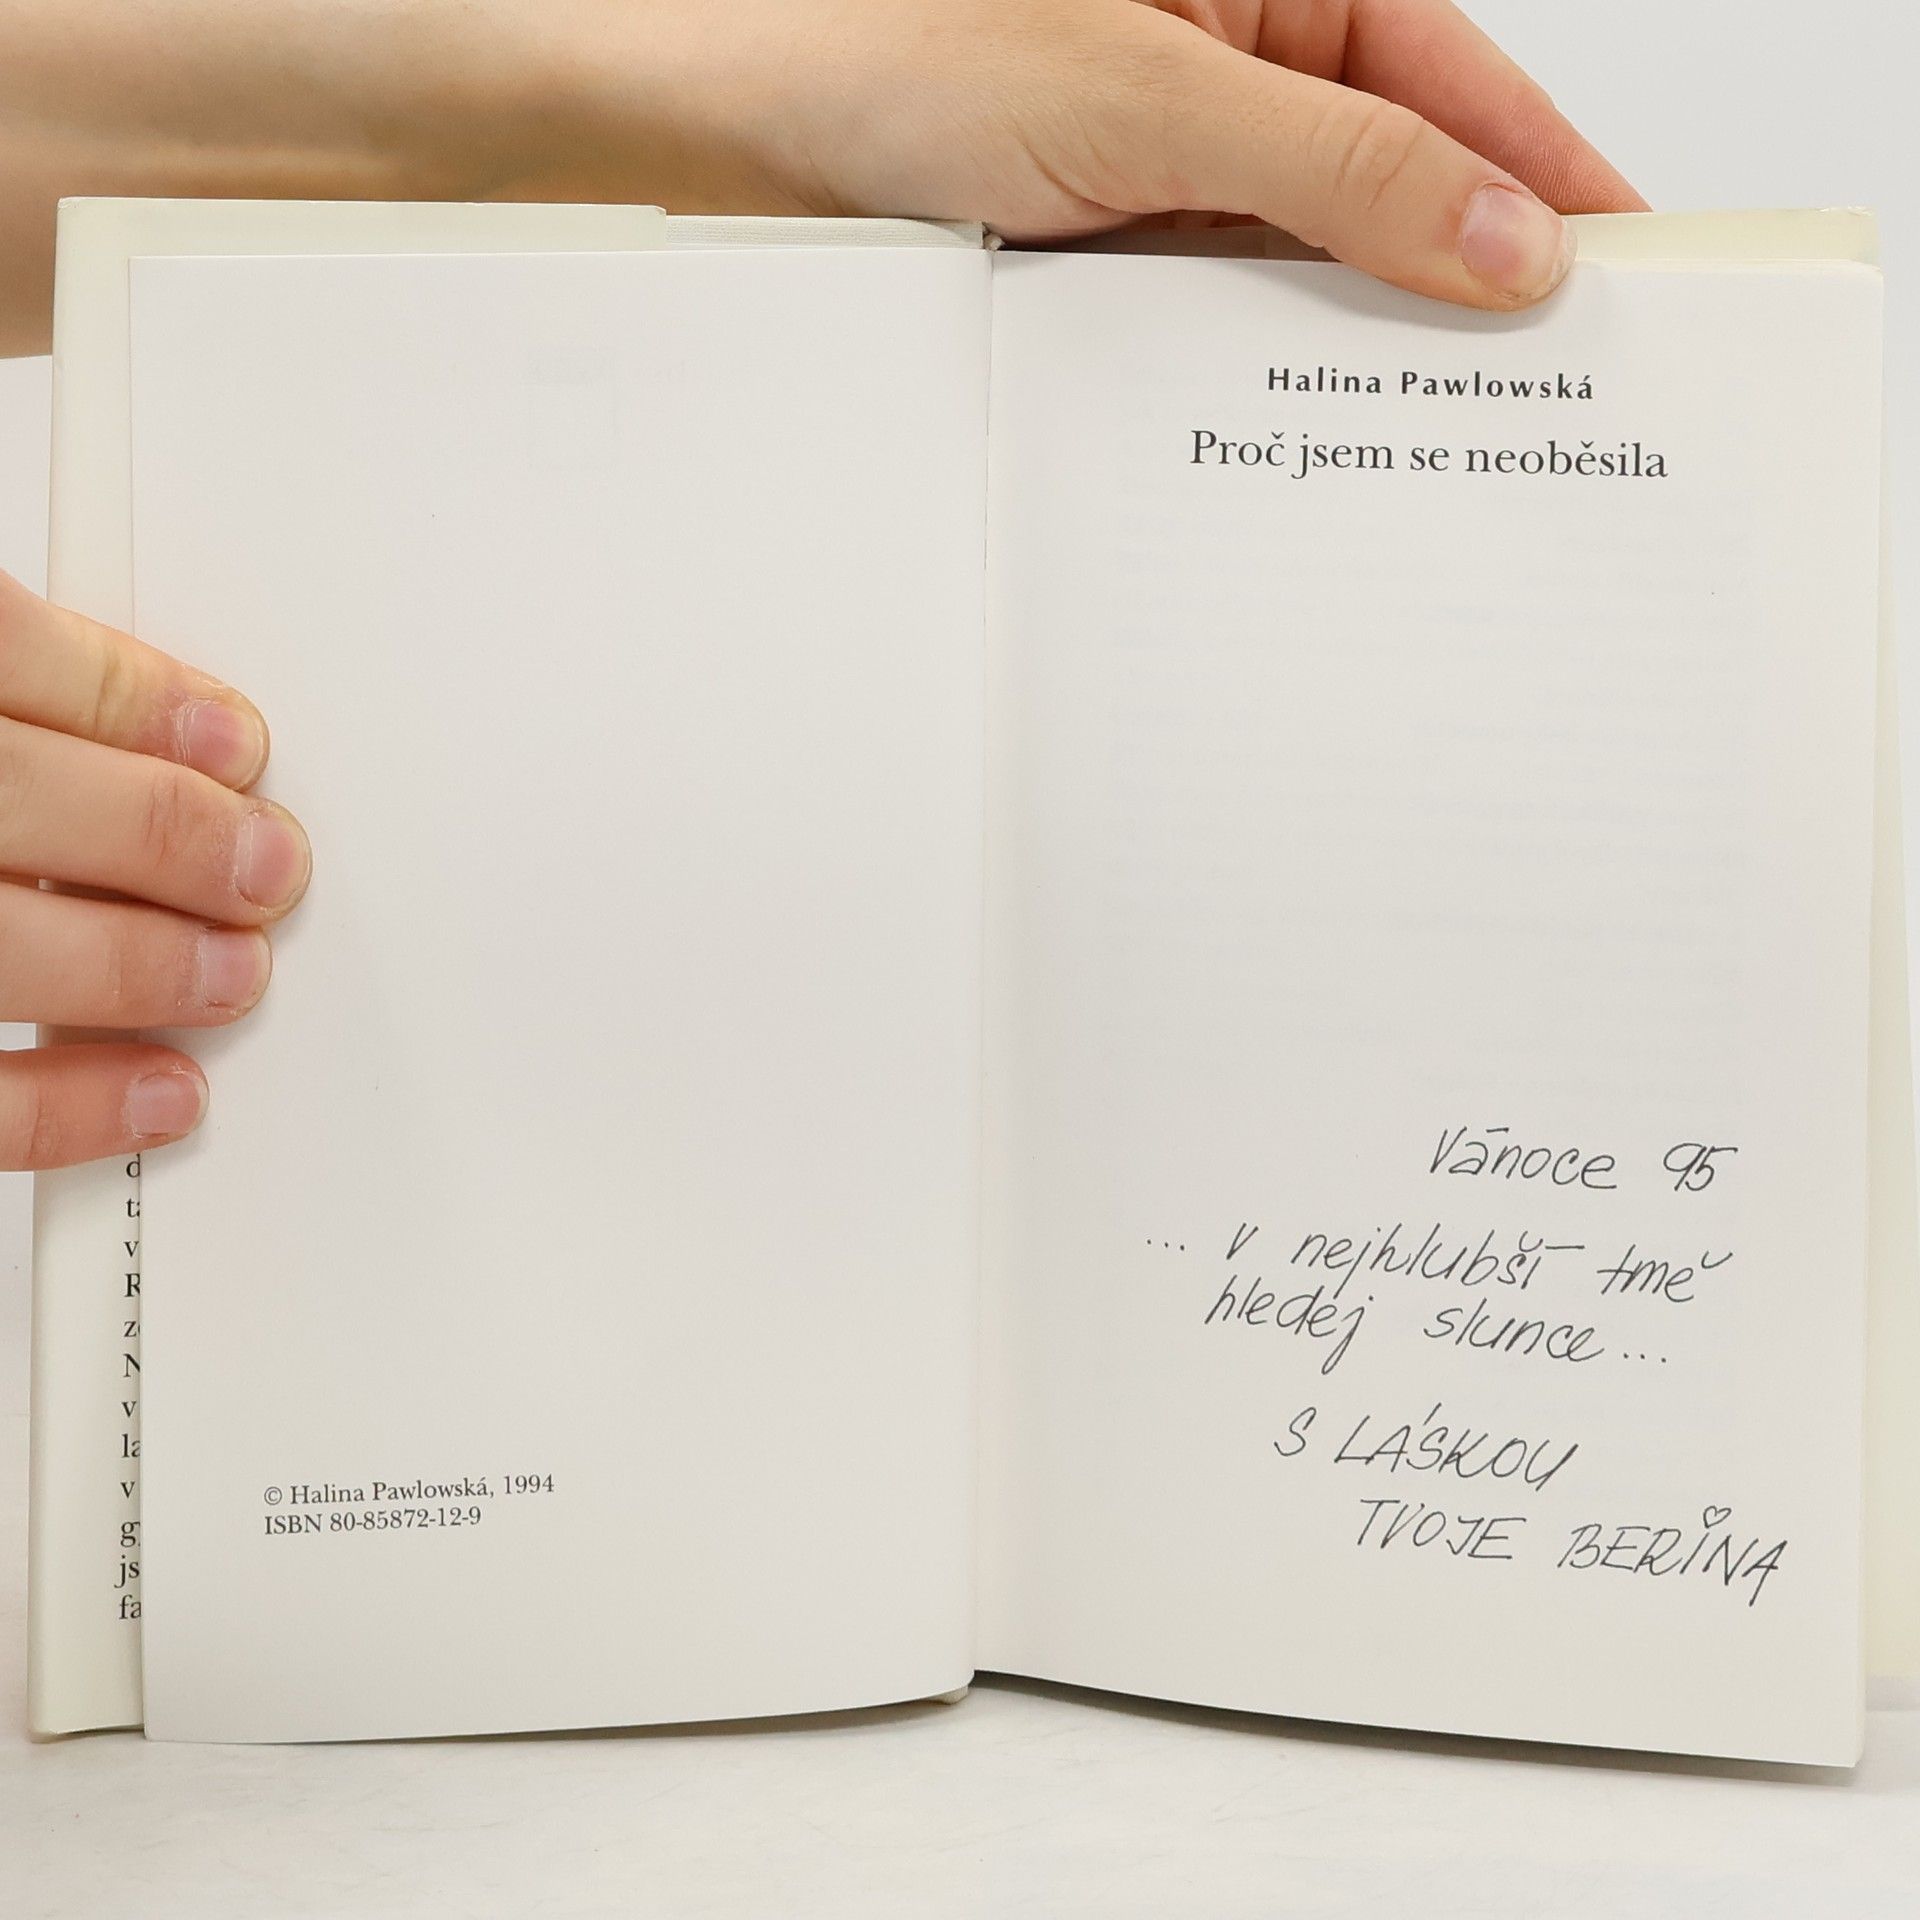 d
v
R
N
v
v
js
fa
© Halina Pawlowská, 1994
ISBN 80-85872-12-9
Halina Pawlowská
Proč jsem se neoběsila
Vánoce 95
... v nejhlubší tmě
hledej slunce...
S LÁSKOU
TVOJE BERINA